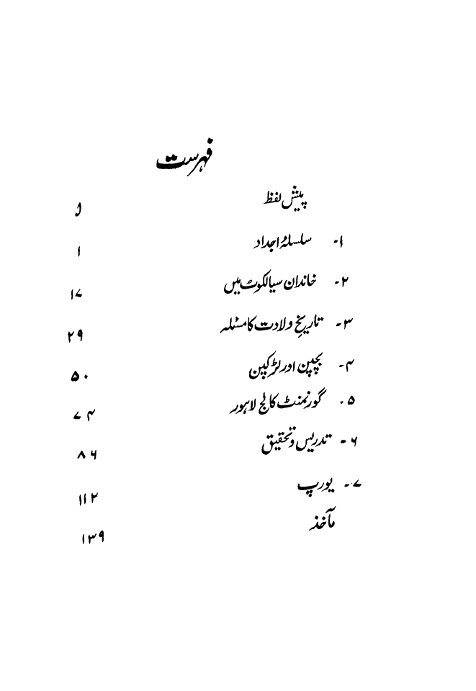 فہرست
پیش لفظ ل
۱۔ سلسلۂ اجداد ۱
۲۔ خاندان سیالکوٹ میں ۱۷
۳۔ تاریخِ ولادت کا مسئلہ ۲۹
۴۔ بچپن اور لڑکپن ۵۰
۵۔ گورنمنٹ کالج لاہور ۷۴
۶۔ تدریس و تحقیق ۸۶
۷۔ یورپ ۱۱۲
مآخذ ۱۳۹